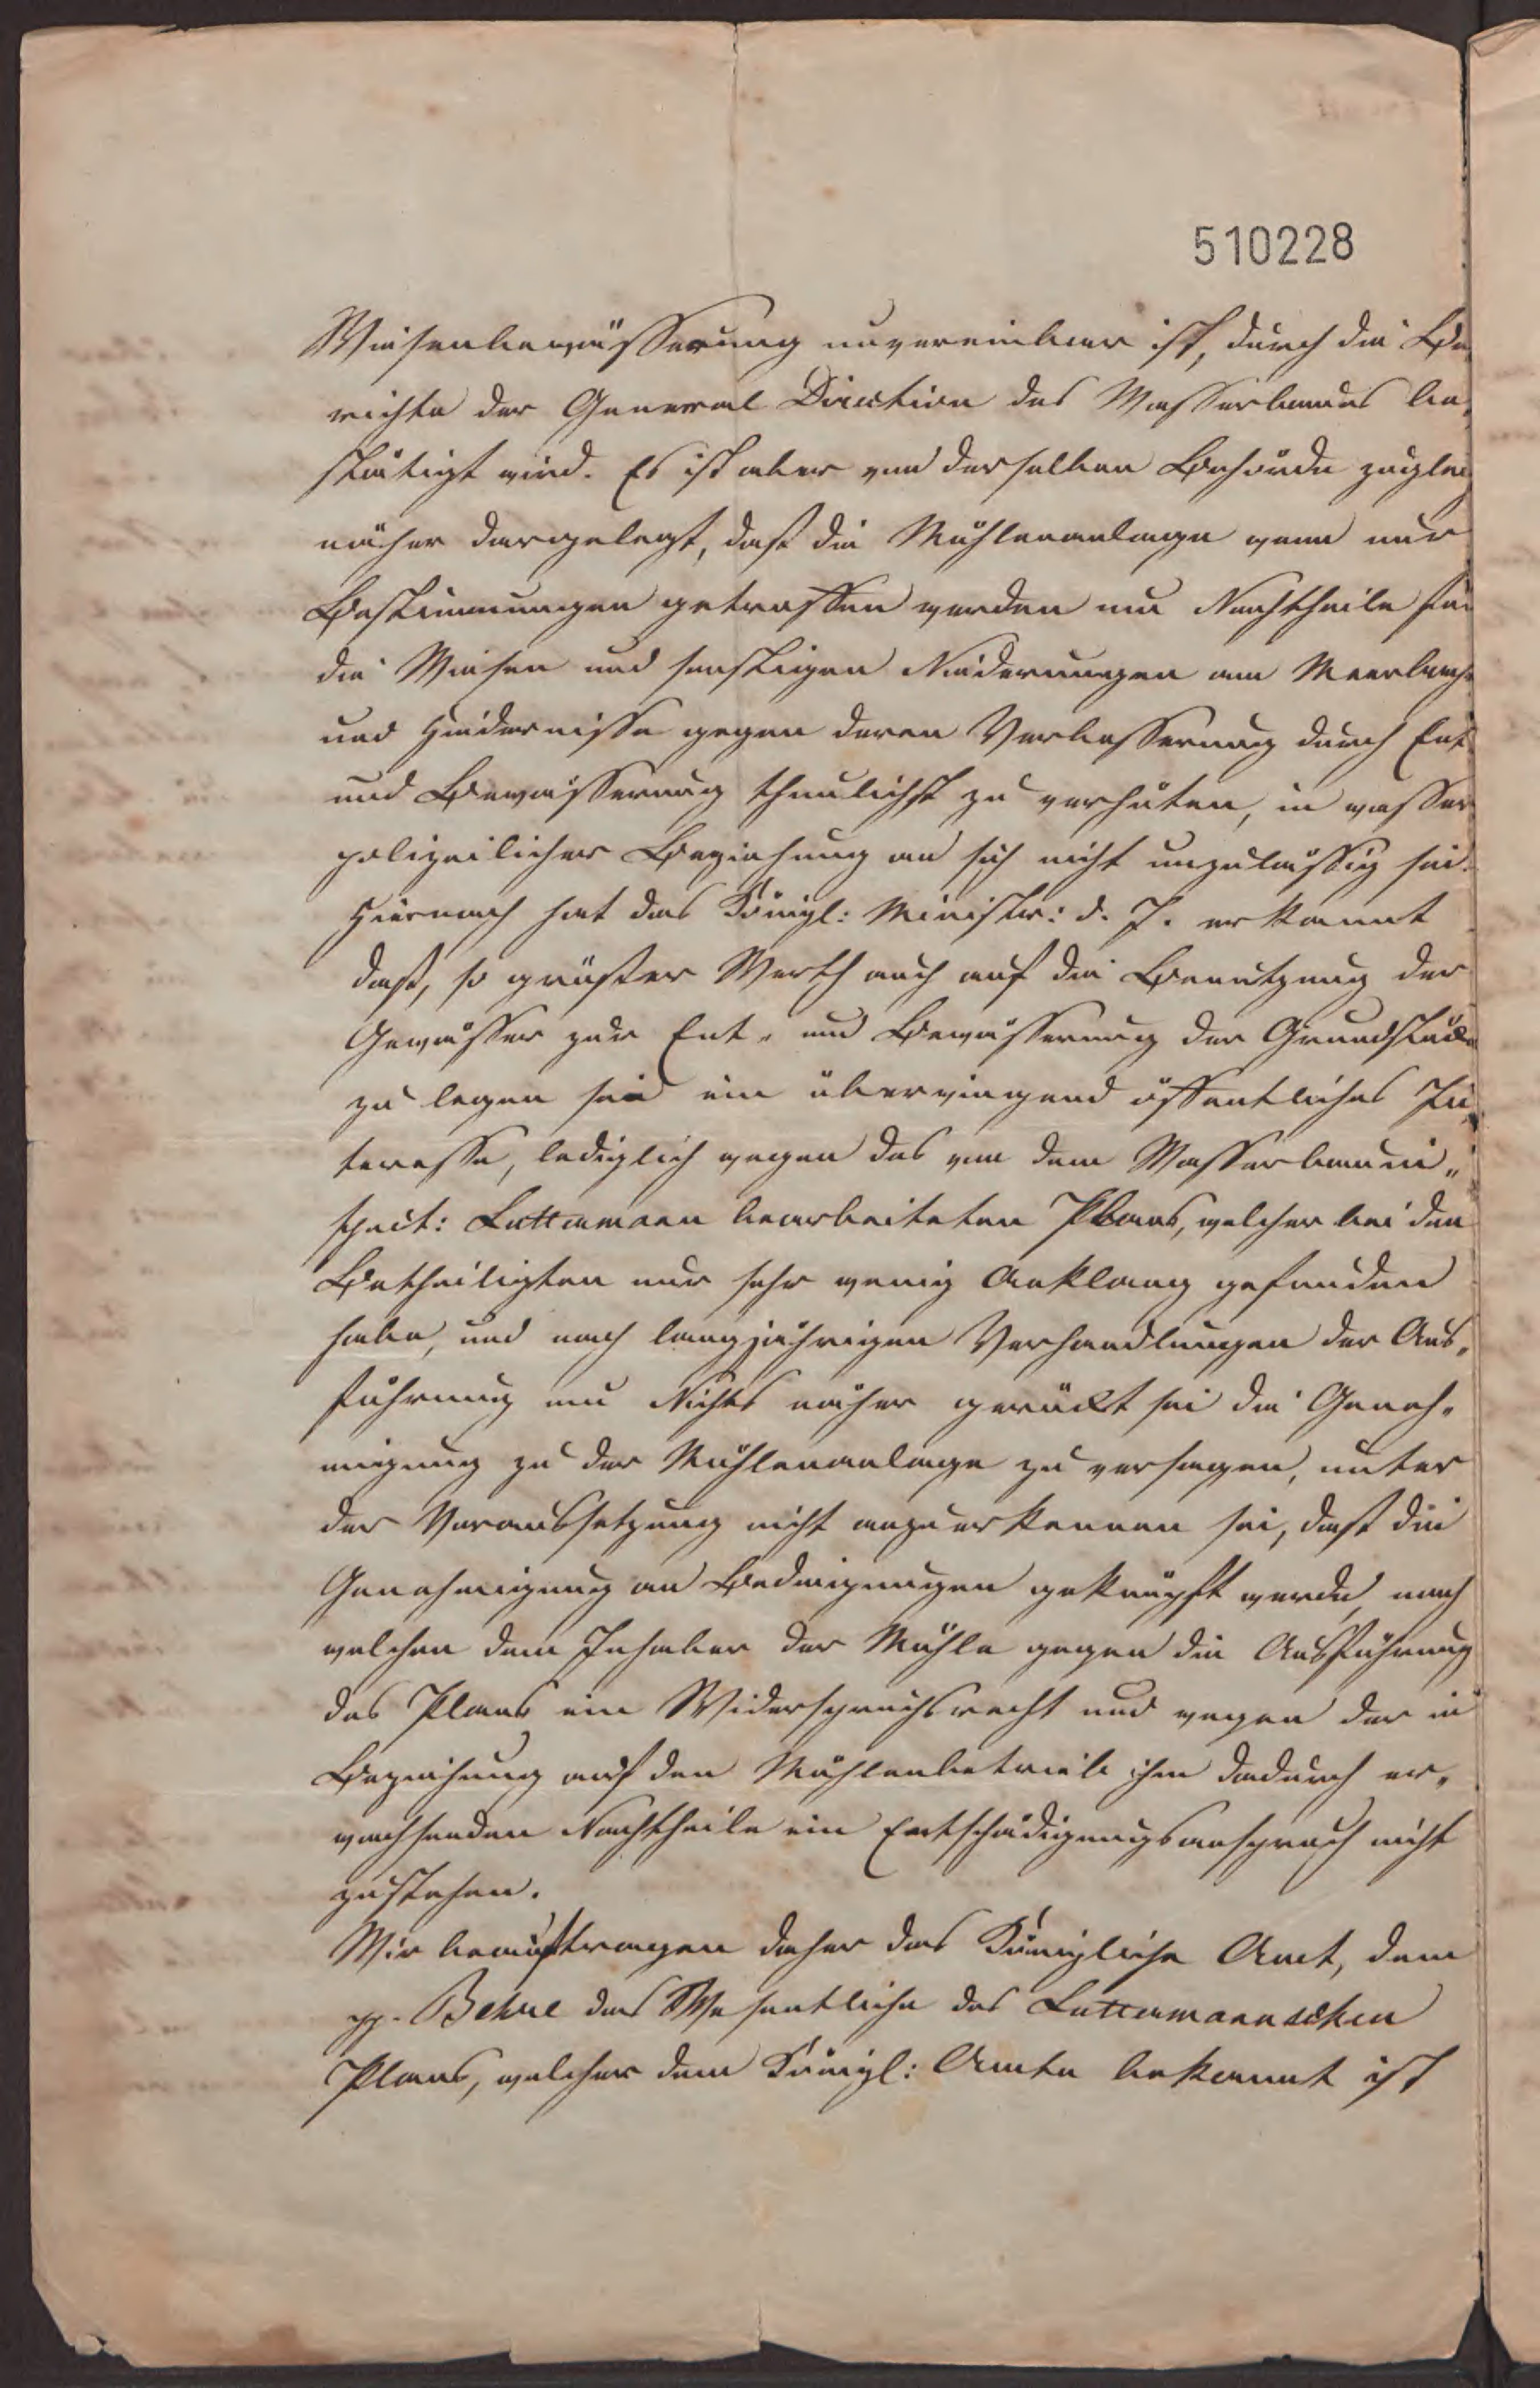 510228
Wiesenbewässerung unvereinbar ist, durch die Be
richte der General Direction des Wasserbaues be,
stätigt wird. Es ist aber von derselben Behörde zuglei
näher dargelegt, daß die Mühlenanlage wenn nur
Bestimmungen getroffen werden um Nachtheile für
die Wiesen und sonstigen Niederungen am Meerbache
und Hindernisse gegen deren Verbesserung durch Ent
und Bewässerung thunlichst zu verhüten, in wasser
polizeilicher Beziehung an sich nicht unzulässig sei.
Hiernach hat das Königl: Ministr: d. J. erkannt
daß, so großer Werth auch auf die Benutzung der
Gewässer zur Ent- und Bewässerung der Grundstücke
zu legen sei ein überwiegend öffentliches In,
teresse, lediglich wegen des von dem Wasserbauin„
spect: Luttermann bearbeiteten Plans, welcher bei den
Betheiligten nur sehr wenig Anklang gefunden
habe, und nach langjährigen Verhandlungen der Aus„
führung um Nichts näher gerückt sei die Geneh„
migung zu der Mühlenanlage zu versagen, unter
der Voraussetzung nicht anzuerkennen sei, daß die
Genehmigung an Bedingungen geknüpft werde, nach
welchen dem Inhaber der Mühle gegen die Ausführung
des Plans ein Widerspruchsrecht und wegen der in
Beziehung auf den Mühlenbetrieb ihm dadurch er„
wachsenden Nachtheile ein Entschädigungsanspruch nicht
zustehen.
Wir beauftragen daher das Königliche Amt, dem
pp. Behre das Wesentliche des Luttermannschen
Plans, welcher dem Königl: Amte bekannt ist